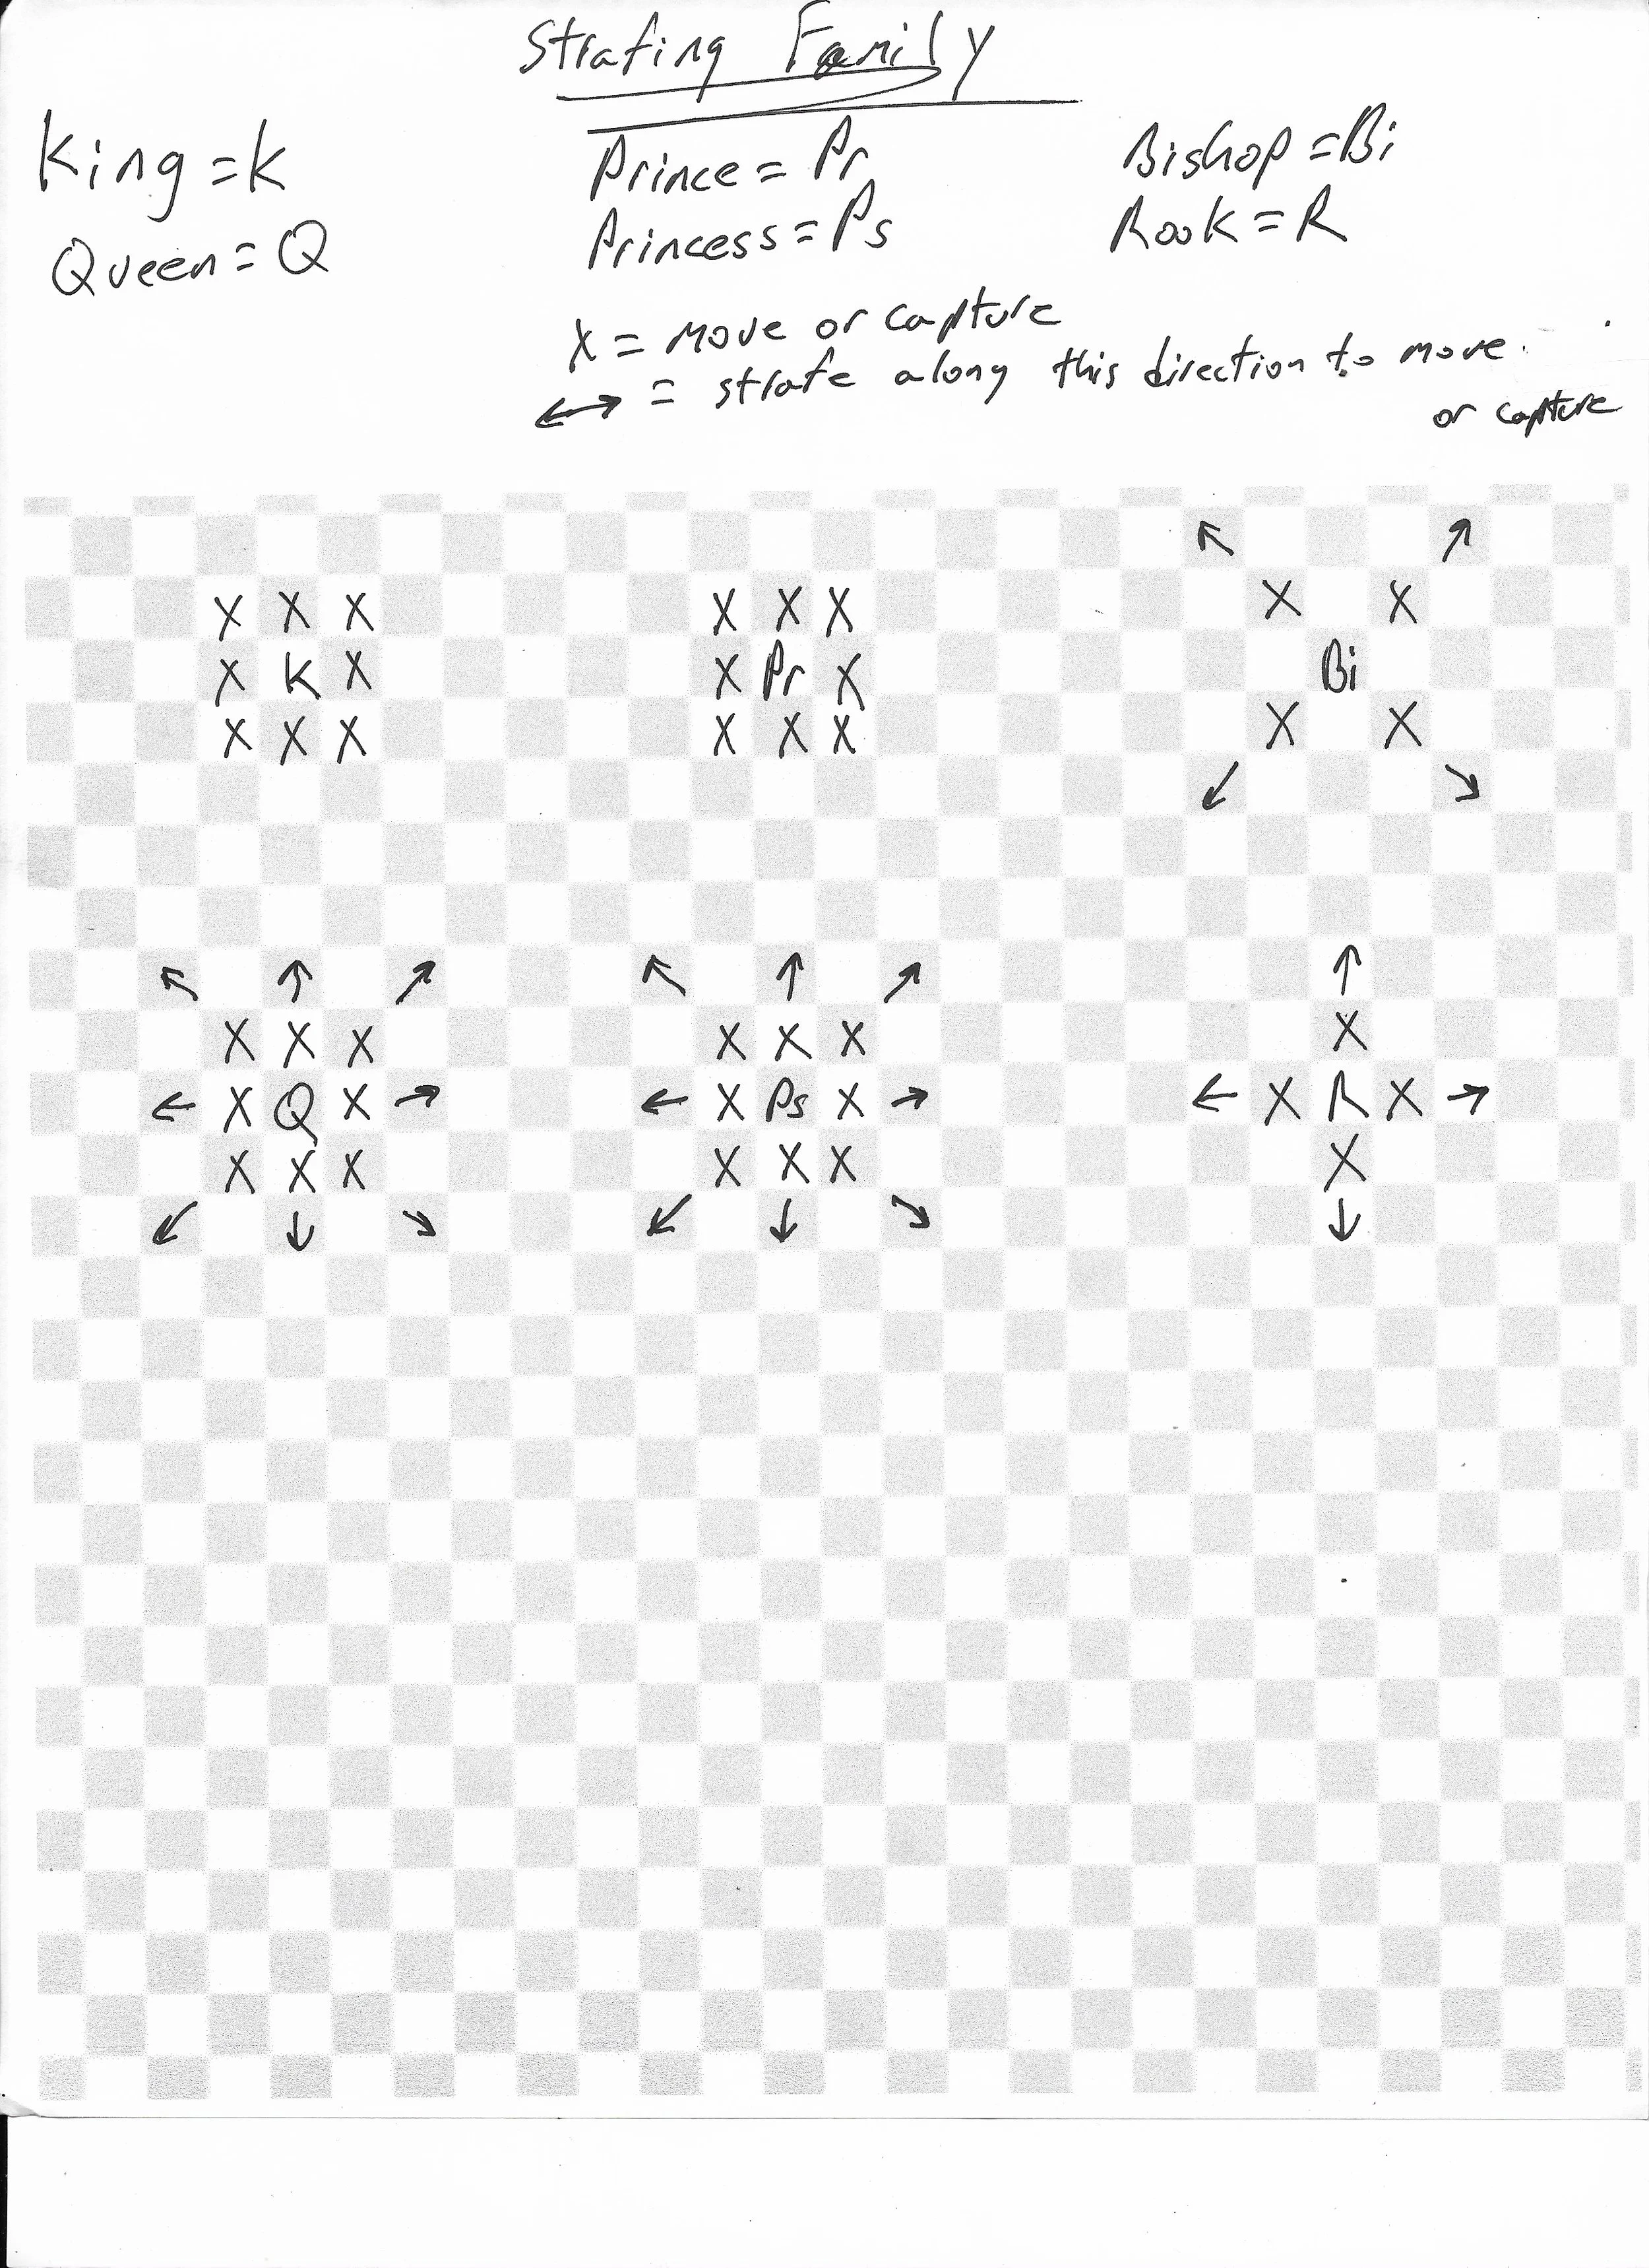 Strafing Family
King = K
Queen = Q
Prince = Pr
Princess = Ps
Bishop = Bi
Rook = R
X = move or capture
↔ = strafe along this direction to move
or capture
X X X
X K X
X X X
X X X
X Pr X
X X X
↖ ↗
X X
Bi
X X
↙ ↘
↖ ↑ ↗
X X X
← X Q X →
X X X
↙ ↓ ↘
↖ ↑ ↗
X X X
← X Ps X →
X X X
↙ ↓ ↘
↑
X
← X R X →
X
↓